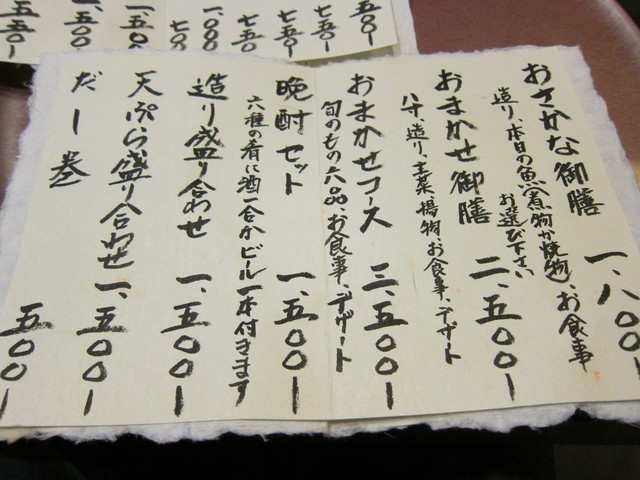 おさかな御膳 一、八〇〇ー
造り、本日の魚(煮物か焼物)、お食事
お選び下さい
おまかせ御膳 二、五〇〇ー
八寸、造り、主菜、揚物、お食事、デザート
おまかせコース 三、五〇〇ー
旬のもの六品、お食事、デザート
晩酌セット 一、五〇〇ー
六種の肴に酒一合かビール一本付きます
造り盛り合わせ 一、五〇〇ー
天ぷら盛り合わせ 一、五〇〇ー
だし巻 五〇〇ー
五〇〇ー
七五〇ー
七五〇ー
七五〇
一、〇〇〇
一、五〇〇